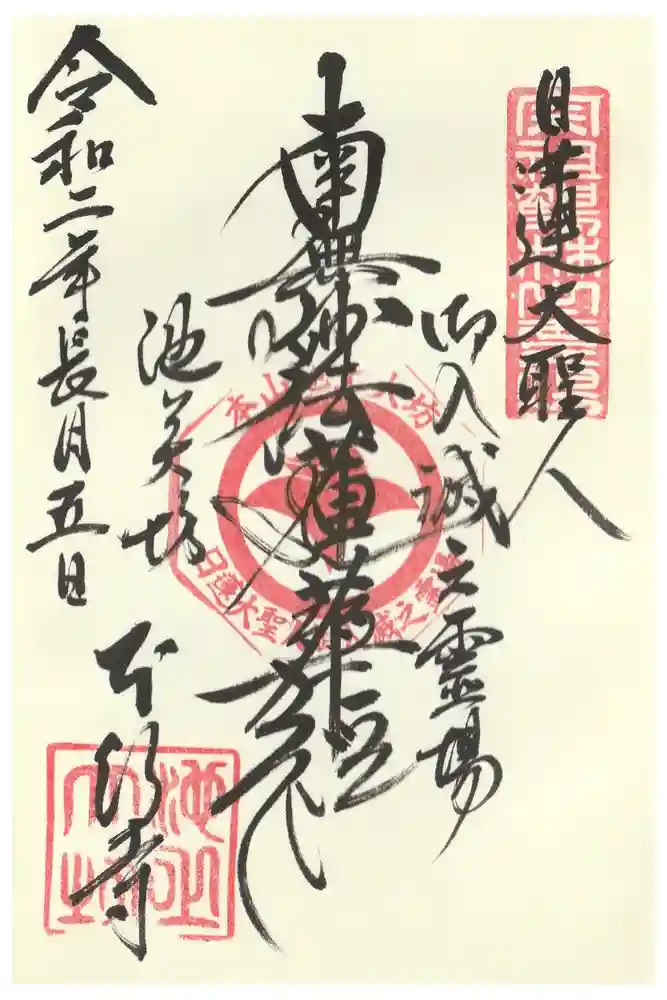 日蓮大聖人
御入滅之靈場
南無妙法蓮華経
池上大坊
本行寺
令和二年長月五日
本山池上大坊
日蓮大聖人御入滅之霊場
池上大坊